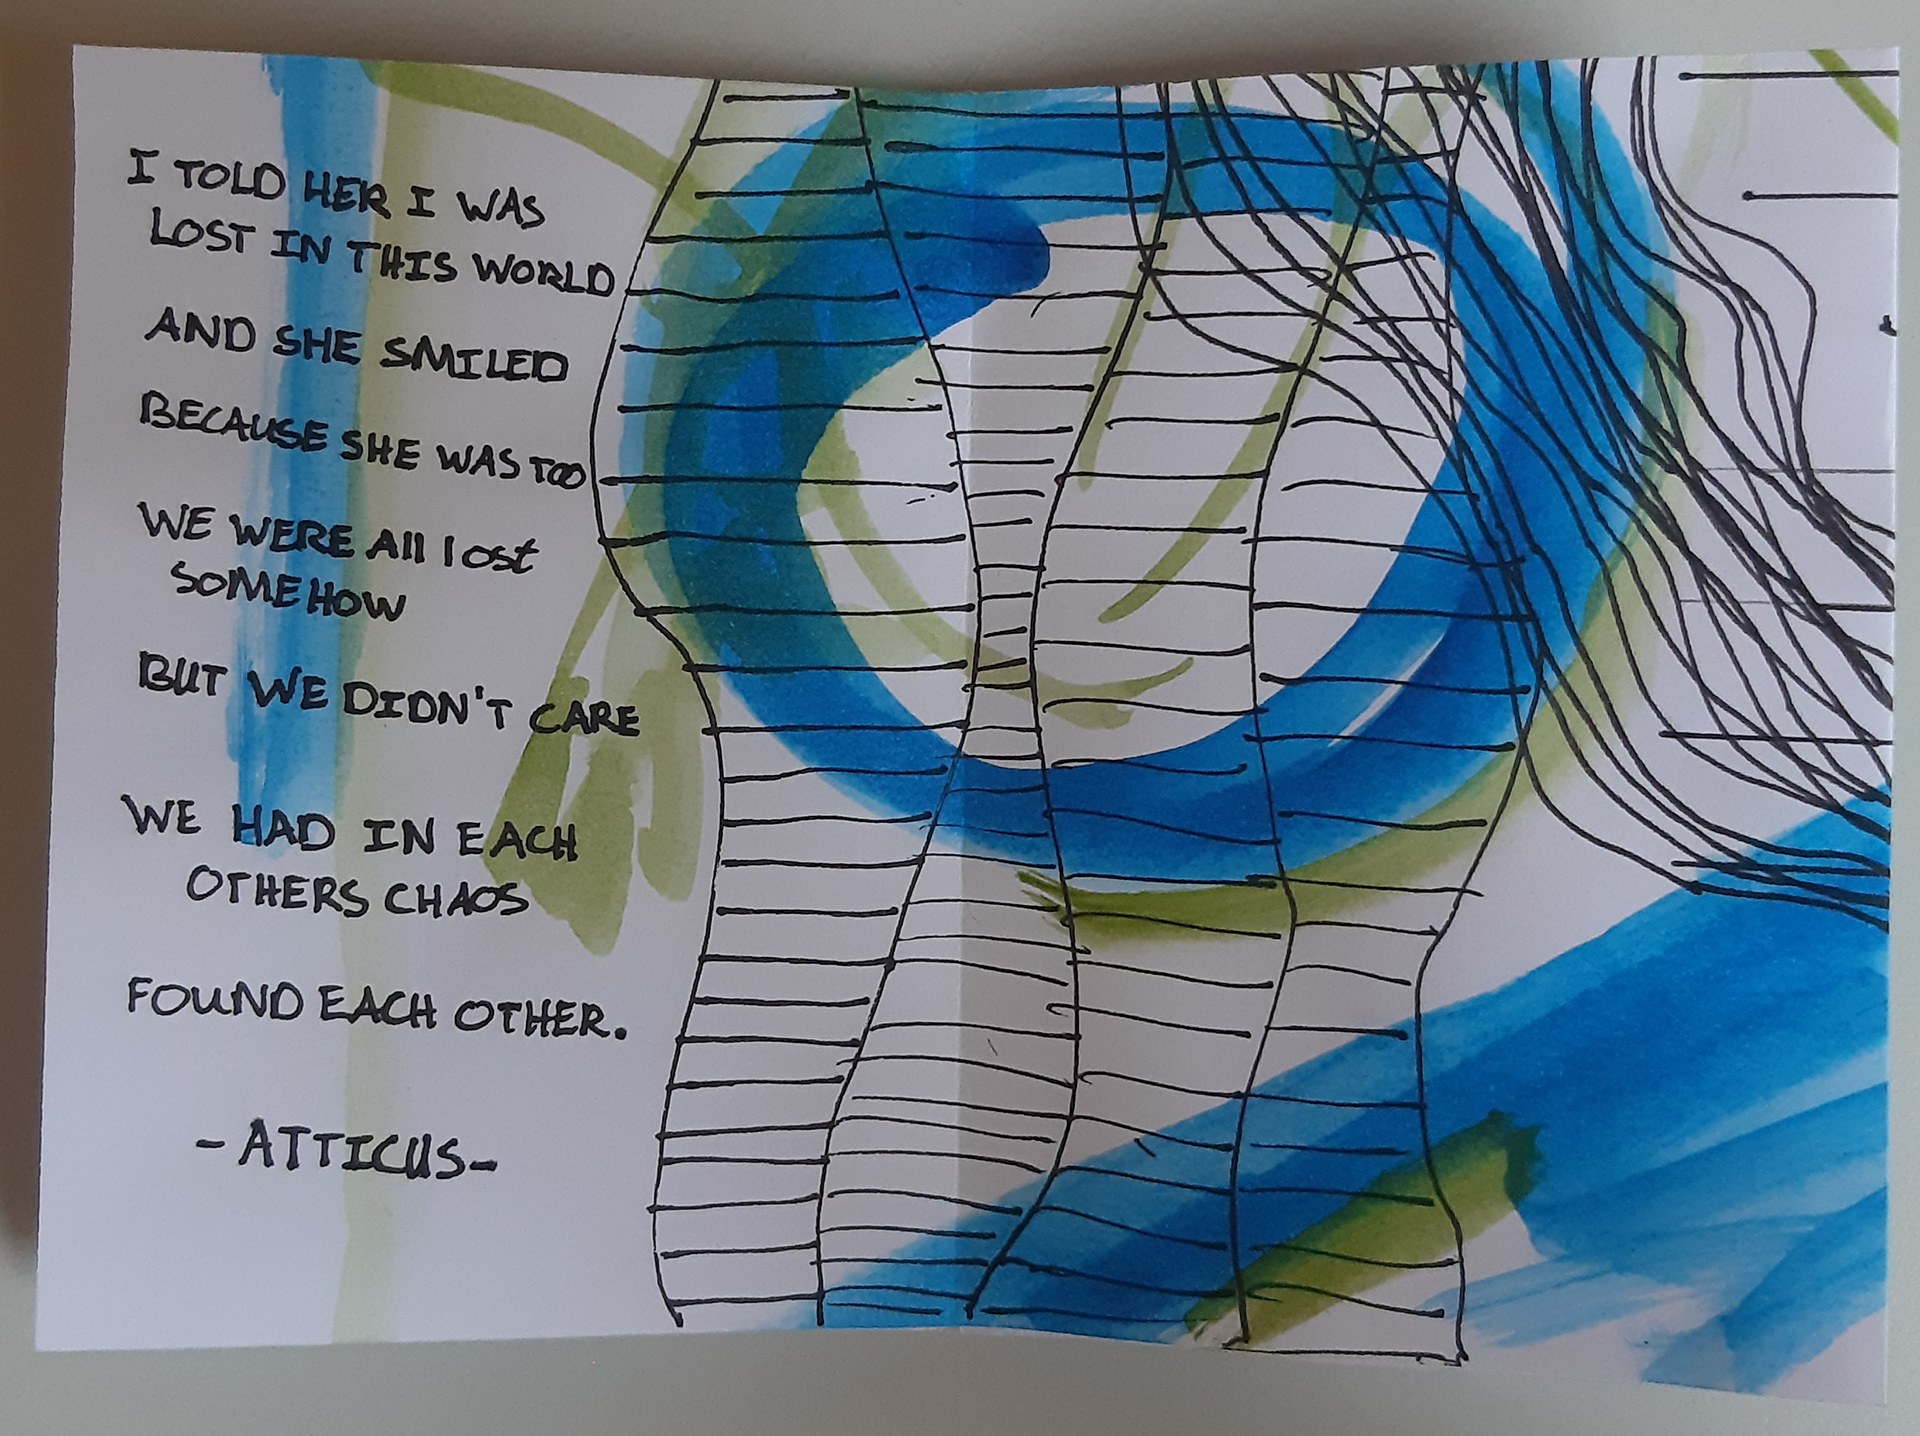 I TOLD HER I WAS
LOST IN THIS WORLD
AND SHE SMILED
BECAUSE SHE WAS TOO
WE WERE All lost
SOMEHOW
BUT WE DIDN'T CARE
WE HAD IN EACH
OTHERS CHAOS
FOUND EACH OTHER.
-ATTICUS-